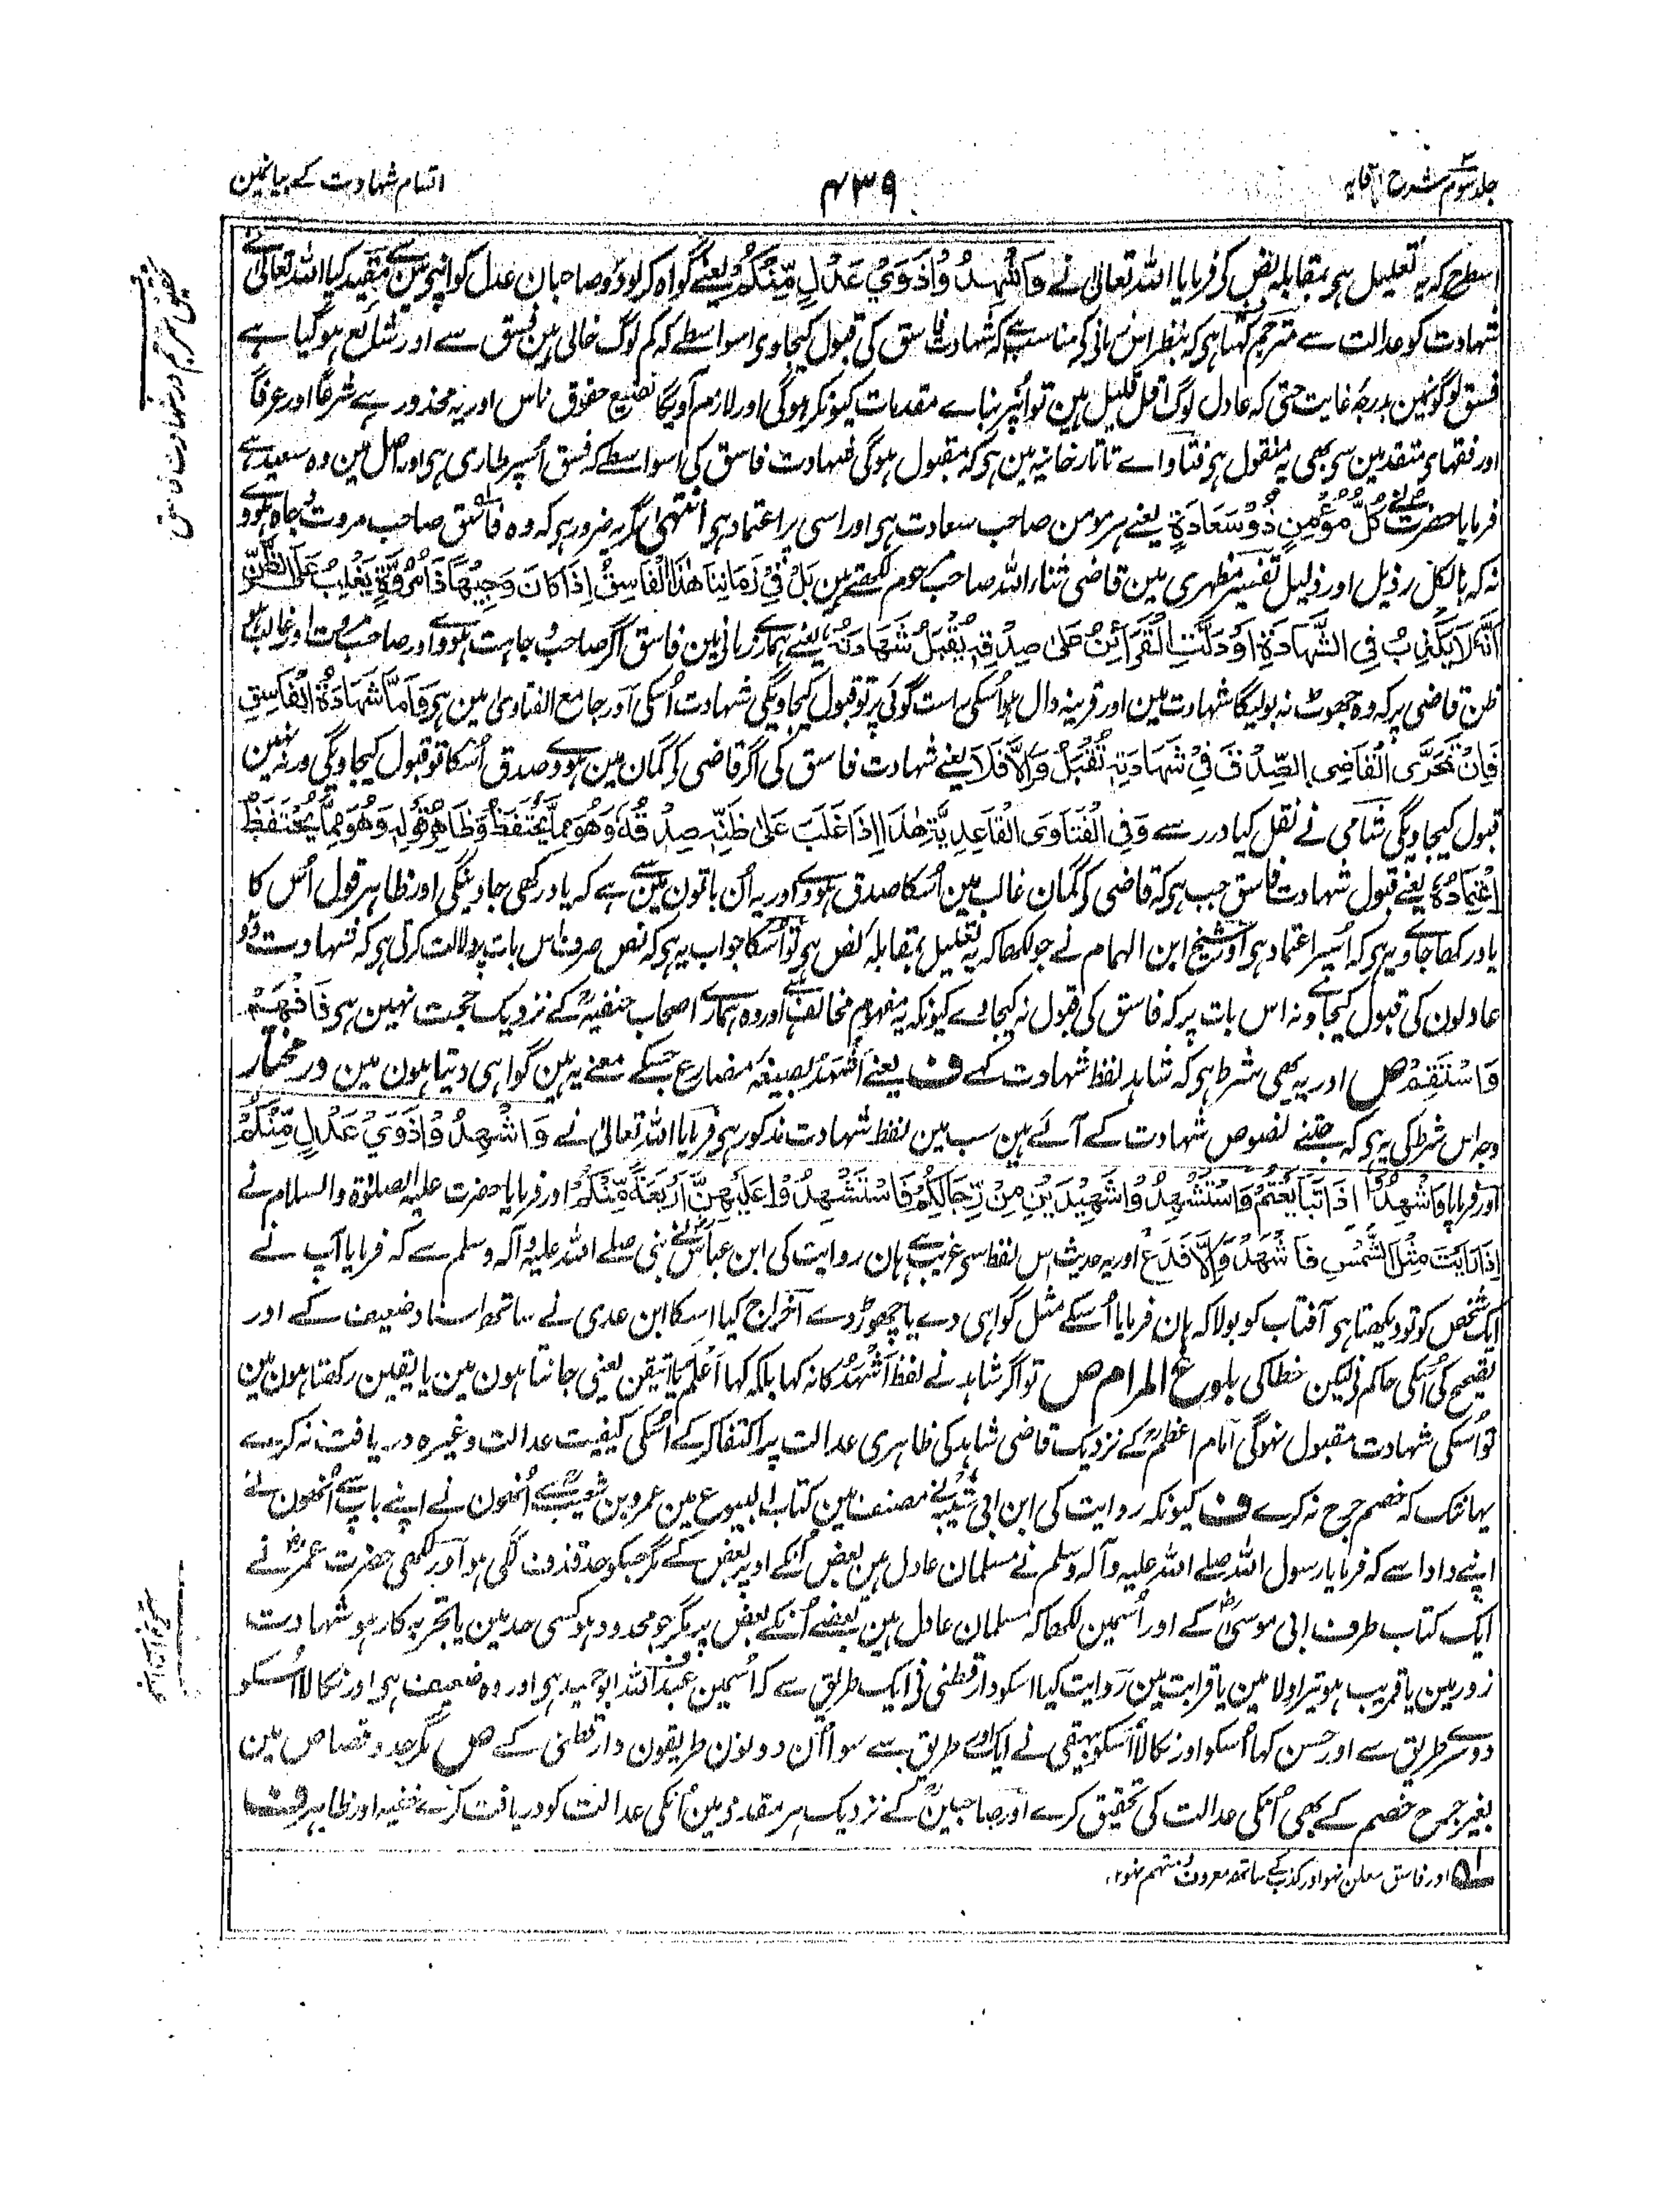 جلد سوم شرح وقایہ
۴۳۹
اقسام شہادت کے بیانمین
اسطرح کہ یہ تعلیل ہی بمقابلہ نص کی فرمایا اللہ تعالیٰ نے وَاَشْهِدُوْا ذَوَيْ عَدْلٍ مِّنْكُمْ یعنے گواہ کرلو دو صاحبان عدل کو اپنی مین سے مقید کیا اللہ تعالیٰ نے
شہادت کو عدالت سے مترجم کہتا ہی کہ بنظر اس زمانی کی مناسب ہے کہ شہادت فاسق کی قبول کیجاوی اسواسطے کہ کم لوگ خالی ہین فسق سے اور شائع ہو گیا ہے
فسق لوگونمین بدرجۂ غایت حتی کہ عادل لوگ اقل قلیل ہین تو اُنپر بناے مقدمات کیونکر ہوگی اور لازم آویگا تضییع حقوق ناس اور یہ محذور ہے شرعًا اور عرفًا
اور فقہای متقدمین سی بھی یہ منقول ہی فتاواے تاتارخانیہ مین ہی کہ مقبول ہوگی شہادت فاسق کی اسواسطے کہ فسق اُسپر طاری ہی اور اصل مین وہ سعید ہے
فرمایا حضرت نے كُلُّ مُؤْمِنٍ ذُوْ سَعَادَةٍ یعنے ہر مومن صاحب سعادت ہی اور اسی پر اعتماد ہی انتہی مگر یہ ضرور ہی کہ وہ فاسق صاحب مروت و جاہ ہووے
نہ کہ بالکل رذیل اور ذلیل تفسیر مظہری مین قاضی ثناء اللہ صاحب مرحوم لکھتے ہین بَلْ فِيْ زَمَانِنَا هٰذَا الْفَاسِقُ اِذَا كَانَ وَجِيْهًا ذَا مُرُوَّةٍ يَغْلِبُ عَلَى الظَّنِّ
اَنَّهٗ لَا يَكْذِبُ فِي الشَّهَادَةِ اَوْ دَلَّتِ الْقَرَائِنُ عَلٰى صِدْقِهٖ يُقْبَلُ شَهَادَتُهٗ یعنے ہمارے زمانی مین فاسق اگر صاحب جاہت ہووے اور صاحب مروت اور غالب ہو
ظن قاضی پر کہ وہ جھوٹ نہ بولیگا شہادت مین اور قرینہ دال ہو اُسکی راست گوئی پر تو قبول کیجاویگی شہادت اُسکی اور جامع الفتاوی مین ہی وَاَمَّا شَهَادَةُ الْفَاسِقِ
فَاِنْ تَحَرَّى الْقَاضِي الصِّدْقَ فِيْ شَهَادَتِهٖ تُقْبَلُ وَاِلَّا فَلَا یعنے شہادت فاسق کی اگر قاضی کی گمان مین ہووے صدق اُسکا تو قبول کیجاویگی ورنہ نہین
قبول کیجاویگی شامی نے نقل کیا درر سے وَفِي الْفَتَاوَى الْقَاعِدِيَّةِ هٰذَا اِذَا غَلَبَ عَلٰى ظَنِّهٖ صِدْقُهٗ وَهُوَ مِمَّا يُحْتَفَظُ وَظَاهِرُ قَوْلِهٖ وَهُوَ مِمَّا يُحْتَفَظُ
اِعْتِمَادُهٗ یعنے قبول شہادت فاسق جب ہی کہ قاضی کی گمان غالب مین اُسکا صدق ہووے اور یہ اُن باتون مین سے ہے کہ یاد رکھی جاوینگی اور ظاہر قول اُس کا
یاد رکھا جاوے یہ ہی کہ اُسپر اعتماد ہی اور شیخ ابن الہمام نے جو لکھا کہ یہ تعلیل بمقابلۂ نص ہی تو اُسکا جواب یہ ہی کہ نص صرف اس بات پر دلالت کرتی ہی کہ شہادت دو
عادلون کی قبول کیجاوے نہ اس بات پر کہ فاسق کی قبول نہ کیجاوے کیونکہ یہ مفہوم مخالف ہے اور وہ ہمارے اصحاب حنفیہ کے نزدیک حجت نہین ہی فَافْهَمْ
وَاسْتَقِمْ ص اور یہ بھی شرط ہی کہ شاہد لفظ شہادت کہے ف یعنے اَشْهَدُ بصیغۂ مضارع جسکے معنے یہ ہین گواہی دیتا ہون مین در مختار
وجہ اس شرط کی یہ ہی کہ جتنے نصوص شہادت کے آئے ہین سب مین لفظ شہادت مذکور ہی فرمایا اللہ تعالیٰ نے وَاَشْهِدُوْا ذَوَيْ عَدْلٍ مِّنْكُمْ
اور فرمایا وَاَشْهِدُوْا اِذَا تَبَايَعْتُمْ وَاسْتَشْهِدُوْا شَهِيْدَيْنِ مِنْ رِّجَالِكُمْ فَاسْتَشْهِدُوْا عَلَيْهِنَّ اَرْبَعَةً مِّنْكُمْ اور فرمایا حضرت علیہ الصلوٰۃ والسلام نے
اِذَا رَاَيْتَ مِثْلَ الشَّمْسِ فَاشْهَدْ وَاِلَّا فَدَعْ اور یہ حدیث اس لفظ سی غریب ہے ہان روایت کی ابن عباسؓ نے نبی صلے اللہ علیہ وآلہ وسلم سے کہ فرمایا آپ نے
ایک شخص کو تو دیکھتا ہی آفتاب کو بولا کہ ہان فرمایا اُسکے مثل گواہی دے یا چھوڑ دے اخراج کیا اسکا ابن عدی نے ساتھ اسناد ضعیف کے اور
تصحیح کی اُسکی حاکم نی لیکن خطا کی بلوغ المرام ص تو اگر شاہد نے لفظ اَشْهَدُ کا نہ کہا بلکہ کہا اَعْلَمُ یا اتیقن یعنی جانتا ہون مین یا یقین رکھتا ہون مین
تو اُسکی شہادت مقبول نہوگی امام اعظمؒ کے نزدیک قاضی شاہد کی ظاہری عدالت پر اکتفا کرکے اُسکی کیفیت عدالت وغیرہ دریافت نہ کرے
یہانتک کہ خصم جرح نہ کرے ف کیونکہ روایت کی ابن ابی شیبہ نے مصنف مین کتاب البیوع مین عمرو بن شعیب سے اُنھون نے اپنے باپ سے اُنھون نے
اپنے دادا سے کہ فرمایا رسول اللہ صلے اللہ علیہ وآلہ وسلم نے مسلمان عادل ہین بعض اُنکے اوپر بعض کے مگر جسکو حد قذف لگی ہو اور لکھی حضرت عمرؓ نے
ایک کتاب طرف ابی موسیٰؓ کے اور اُسمین لکھا کہ مسلمان عادل ہین بعضے اُنکے بعض پر مگر جو محدود ہو کسی حد مین یا تجربہ کار ہو شہادت
زور مین یا قریب ہو تیرا ولا مین یا قرابت مین روایت کیا اسکو دارقطنی نی ایک طریق سے کہ اُسمین عبد اللہ ابو حمید ہی اور وہ ضعیف ہی اور نکالا اُسکو
دوسرے طریق سے اور حسن کہا اُسکو اور نکالا اُسکو بیہقی نے ایک اور طریق سے سوا اُن دونون طریقون دارقطنی کے ص مگر حد و قصاص مین
بغیر جرح خصم کے بھی اُنکی عدالت کی تحقیق کرے اور صاحبینؒ کے نزدیک ہر مقدمہ مین اُنکی عدالت کو دریافت کرے خفیہ اور ظاہر ف
اور فاسق معلن نہو اور کذب کے ساتھ معروف و متہم نہو ۱۲
تحقیق مترجم در شہادت فاسق